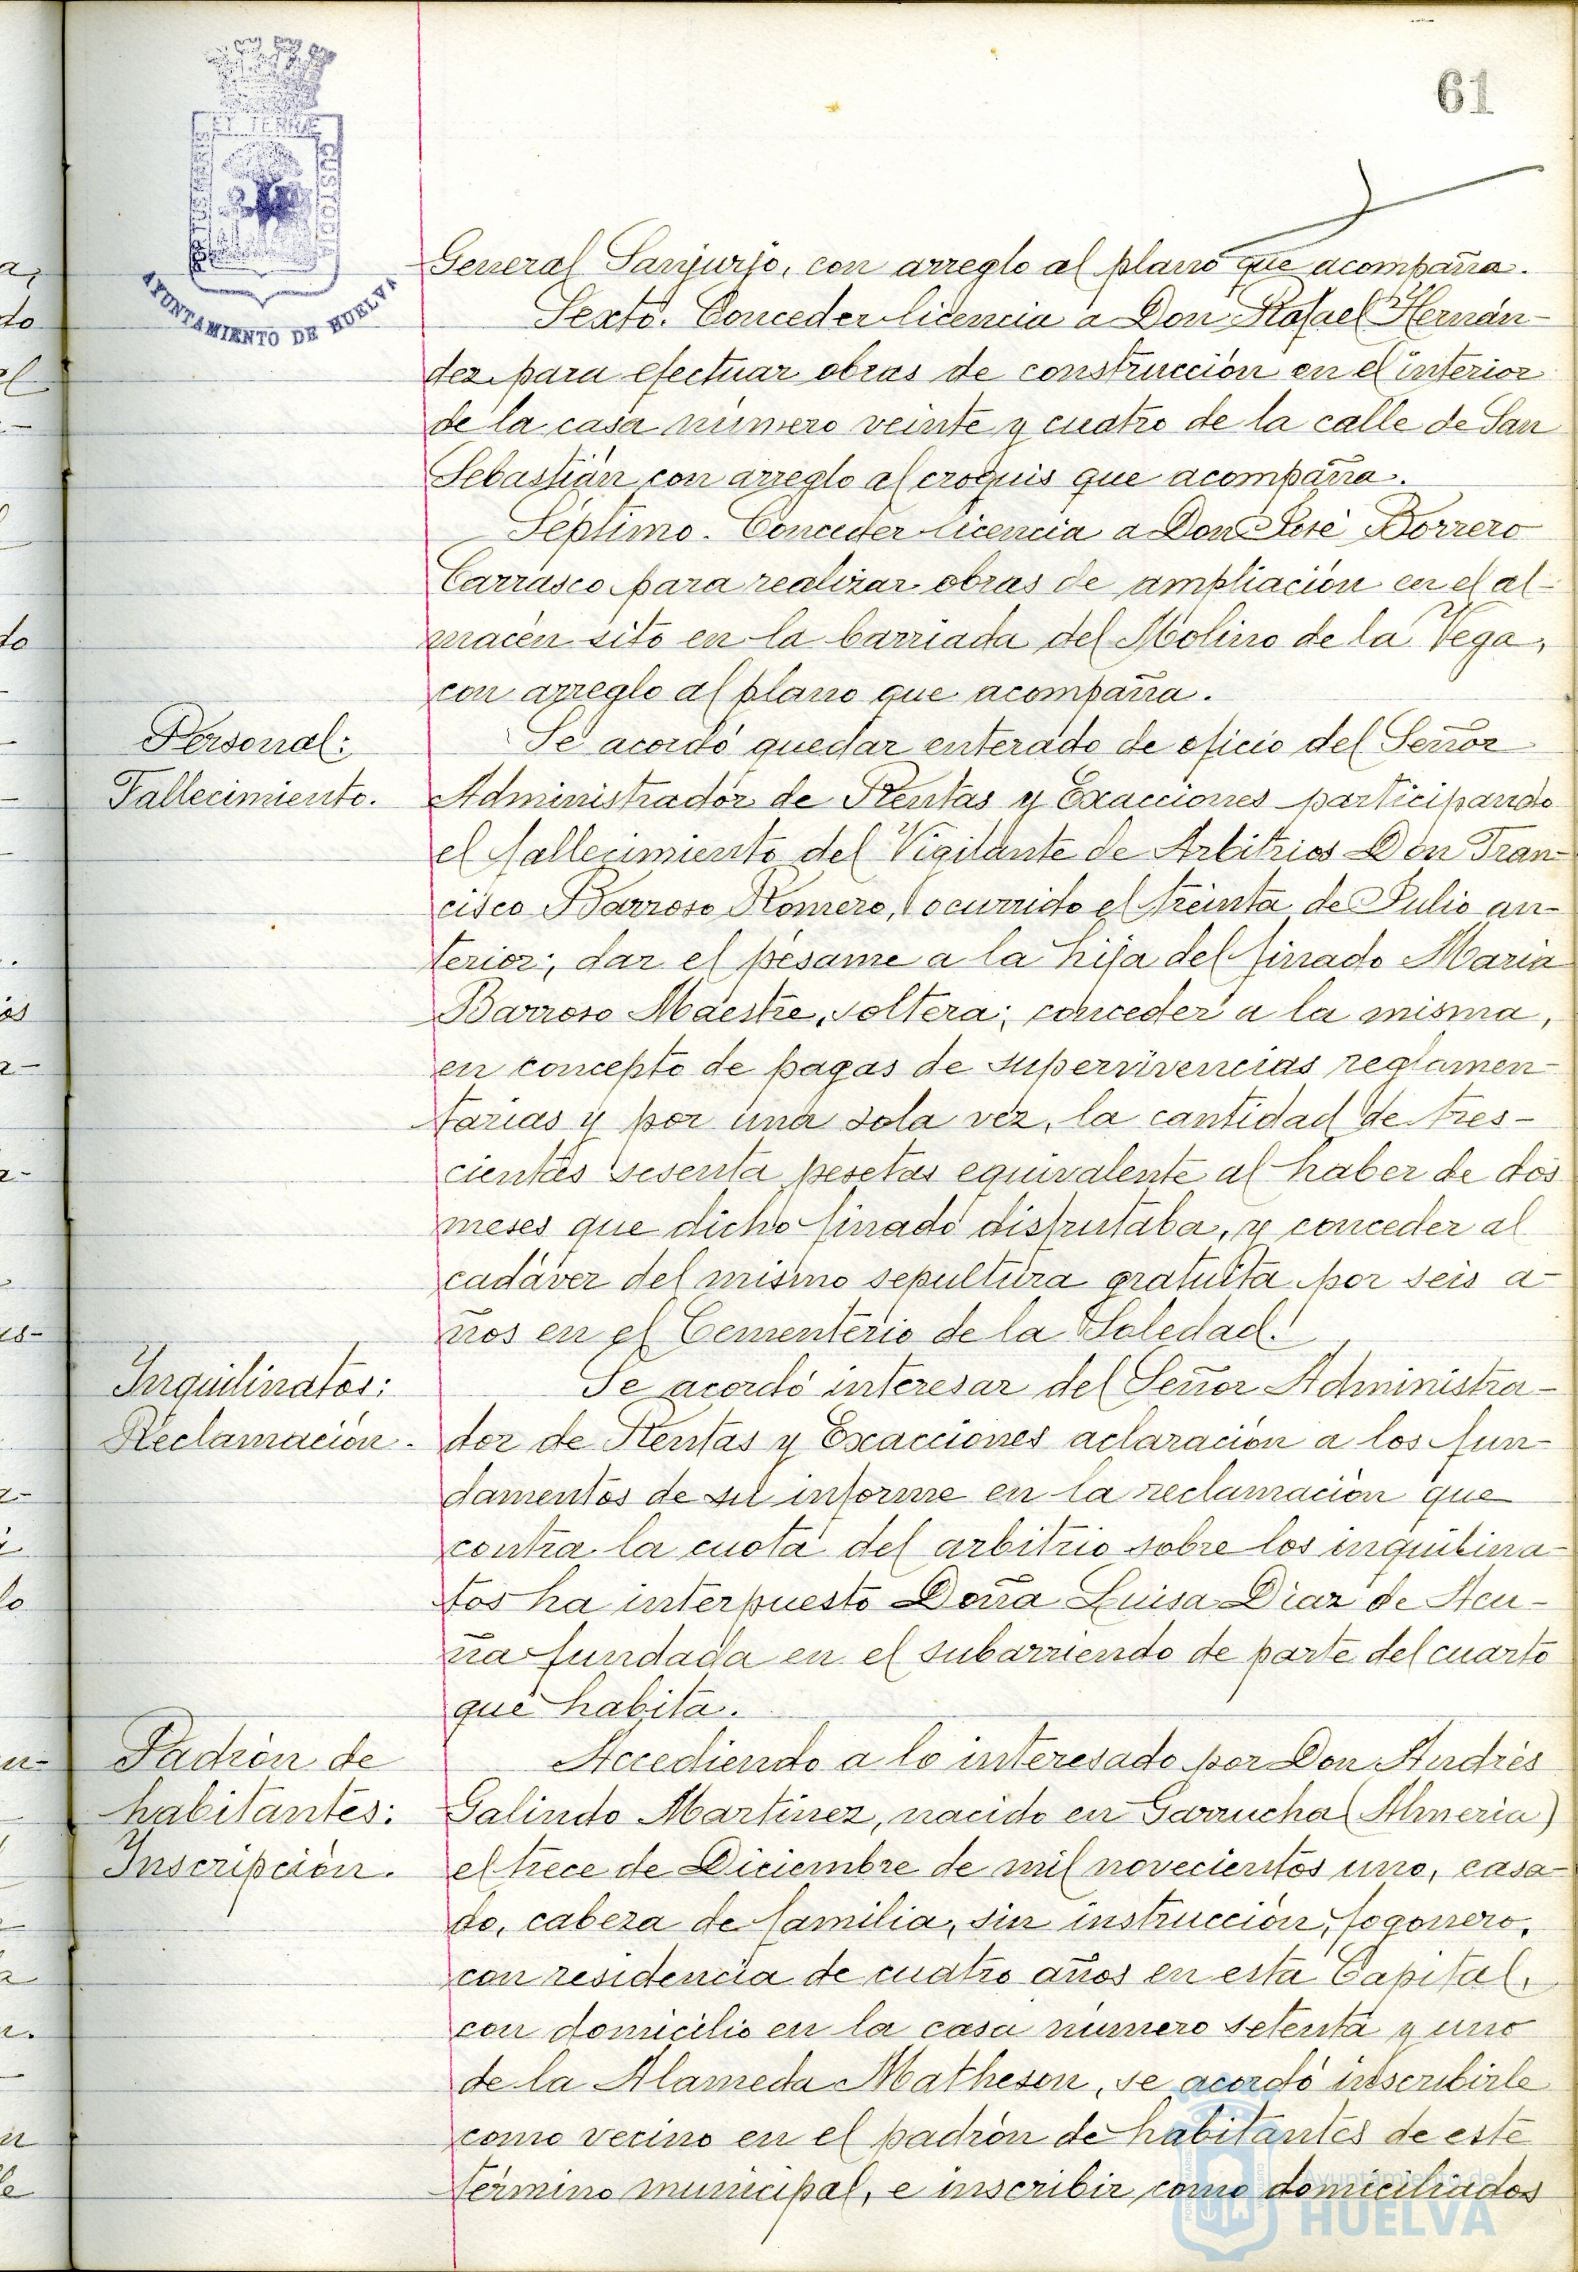 61
PORTUS MARIS
ET TERRÆ
CUSTODIA
AYUNTAMIENTO DE HUELVA
General Sanjurjo, con arreglo al plano que acompaña.
Sexto. Conceder licencia a Don Rafael Hernán-
dez para efectuar obras de construcción en el interior
de la casa número veinte y cuatro de la calle de San
Sebastián con arreglo al croquis que acompaña.
Séptimo. Conceder licencia a Don José Borrero
Carrasco para realizar obras de ampliación en el al-
macén sito en la barriada del Molino de la Vega,
con arreglo al plano que acompaña.
Personal:
Fallecimiento.
Se acordó quedar enterado de oficio del Señor
Administrador de Rentas y Exacciones participando
el fallecimiento del Vigilante de Arbitrios Don Fran-
cisco Barroso Romero, ocurrido el treinta de Julio an-
terior; dar el pésame a la hija del finado María
Barroso Maestre, soltera; conceder a la misma,
en concepto de pagas de supervivencias reglamen-
tarias y por una sola vez, la cantidad de tres-
cientas sesenta pesetas equivalente al haber de dos
meses que dicho finado disfrutaba, y conceder al
cadáver del mismo sepultura gratuita por seis a-
ños en el Cementerio de la Soledad.
Inquilinatos:
Reclamación.
Se acordó interesar del Señor Administra-
dor de Rentas y Exacciones aclaración a los fun-
damentos de su informe en la reclamación que
contra la cuota del arbitrio sobre los inquilina-
tos ha interpuesto Doña Luisa Díaz de Acu-
ña fundada en el subarriendo de parte del cuarto
que habita.
Padrón de
habitantes:
Inscripción.
Accediendo a lo interesado por Don Andrés
Galindo Martínez, nacido en Garrucha (Almería)
el trece de Diciembre de mil novecientos uno, casa-
do, cabeza de familia, sin instrucción, fogonero,
con residencia de cuatro años en esta Capital,
con domicilio en la casa número setenta y uno
de la Alameda Matheson, se acordó inscribirle
como vecino en el padrón de habitantes de este
término municipal, e inscribir como domiciliados
Ayuntamiento de
HUELVA